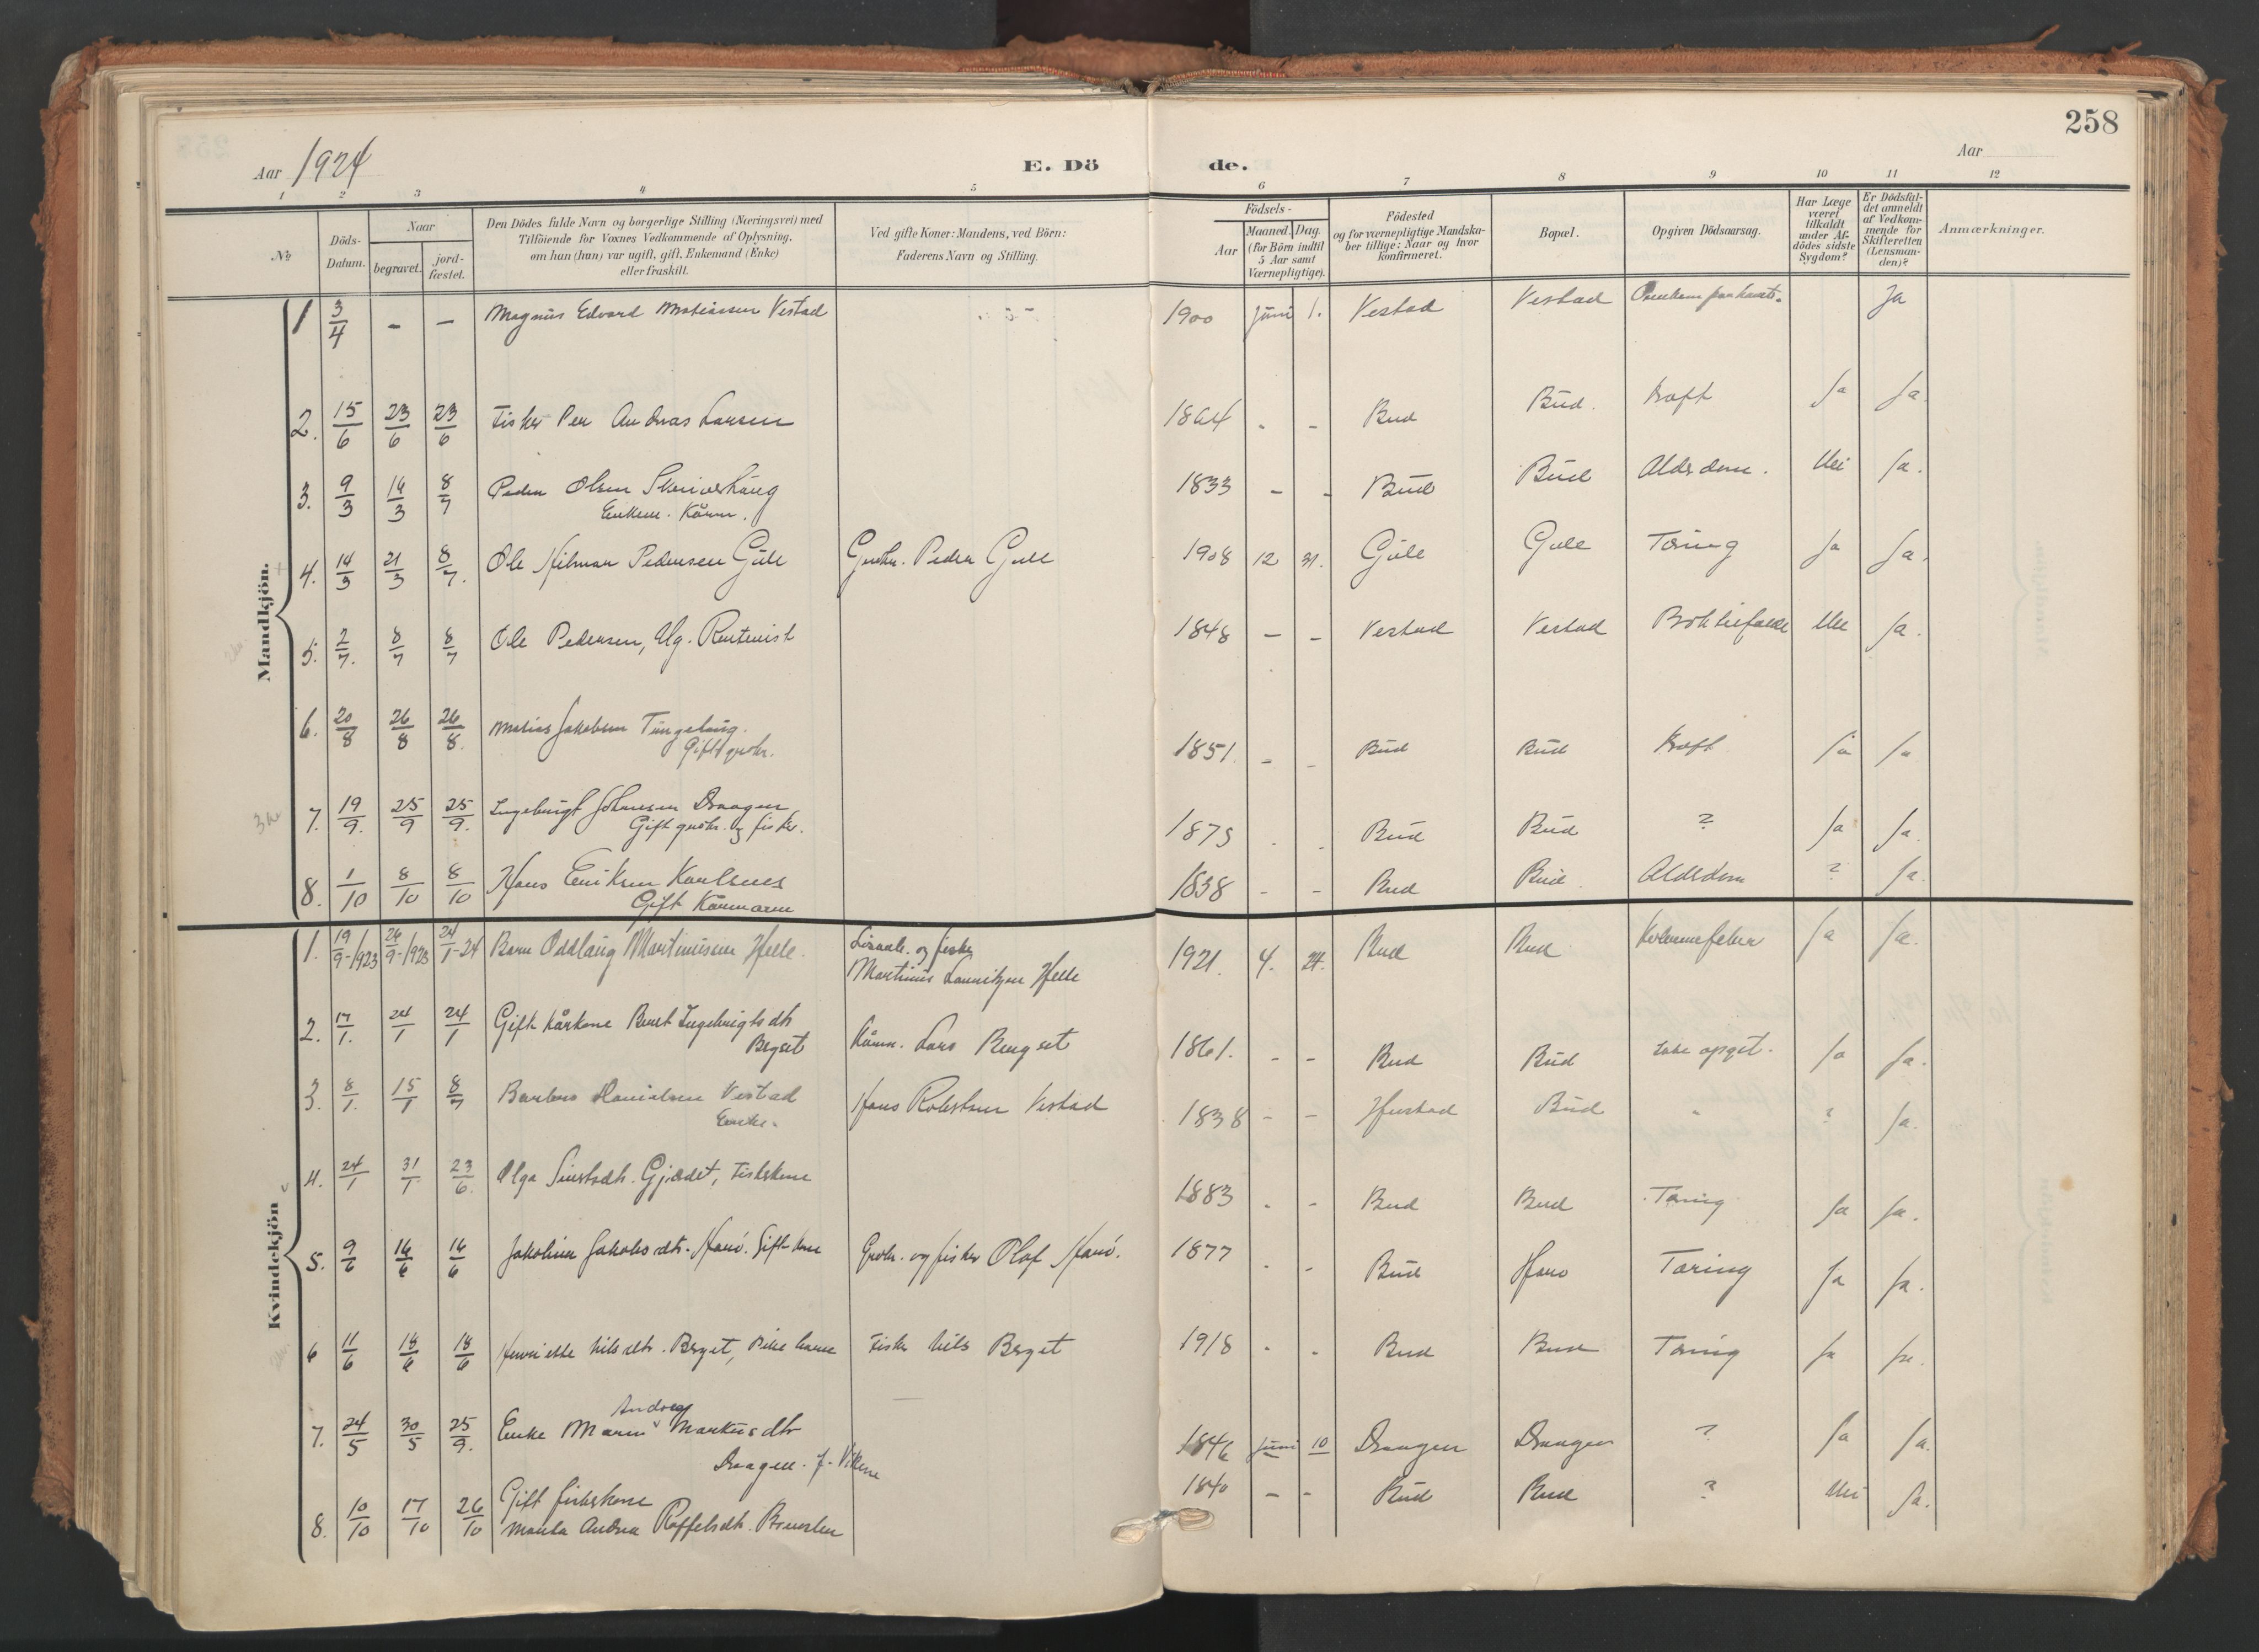 258
Aar 1924
E. Dö de.
Aar
1 2 3 4 5 6 7 8 9 10 11 12
No
Döds-Datum.
Naar
begravet.
jord-fæstet.
Den Dödes fulde Navn og borgerlige Stilling (Næringsvei) med
Tilföiende for Voxnes Vedkommende af Oplysning,
om han (hun) var ugift, gift, Enkemand (Enke)
eller fraskilt.
Ved gifte Koner: Mandens, ved Börn:
Faderens Navn og Stilling.
Födsels-
Aar
Maaned. Dag.
(for Börn indtil
5 Aar samt
Værnepligtige).
Födested
og for værnepligtige Mandska-
ber tillige: Naar og hvor
konfirmeret.
Bopæl.
Opgiven Dödsaarsag.
Har Læge
været
tilkaldt
under Af-
dödes sidste
Sygdom?
Er Dödsfal-
det anmeldt
af Vedkom-
mende for
Skifteretten
(Lensman-
den)?
Anmærkninger.
Mandkjön.
1 3/4 - - Magnus Edvard Matiassen Vestad 1900 Juni 1. Vestad Vestad Ja
2. 15/6 23/6 23/6 Fisker Per Andreas Larsen 1864 - - Bud Bud. Kræft Ja Ja
3. 9/3 14/3 8/7 Peder Olsen Skriverhaug 1833 - - Bud Bud Alderdom. Nei Ja.
Enkem. Kårm.
4. 14/3 21/3 8/7. Ole Hilmar Pedersen Gule Gaardbr. Peder Gule 1908 12 31. Gule Gule Tæring Ja Ja.
5. 2/7. 8/7 8/7 Ole Pedersen, Ug. Rentenist 1848 - - Vestad Vestad Nei Ja.
6. 20/8 26/8 26/8. Matias Jakobsen Tungehaug.
Gift gbr. 1851. - - Bud Bud Kræft Ja Ja
7. 19/9. 25/9 25/9. Ingebrigt Johansen Draagen
Gift gbr. og fisker. 1875 - - Bud Bud ? Ja Ja.
8. 1/10 8/10 8/10 Hans Eriksen Karlsnes
Gift Kårmann 1838 - - Bud Bud Alderdom ? Ja.
Kvindekjön
1. 19/9-1923 26/9-1923 24/1-24 Barn Oddlaug Martinussen Helle. og fisker
Martinus Lauritzen Helle 1921. 4. 24. Bud Bud Ja Ja.
2. 17/1. 24/1 24/1 Gift kårkone Beret Ingebrigtsdtr
Berget Kårm. Lars Berget 1861. - - Bud Bud Ikke opgit. Ja Ja.
3. 8/1. 15/1 8/7 Barbro Danielsen Vestad
Enke. Hans Robertsen Vestad 1838 - - Hustad Bud " ? Ja.
4. 24/1 31/1 23/6. Olga Sivertsdtr. Gjædet, Fiskerkone 1883 - - Bud Bud Tæring Ja Ja.
5. 9/6 14/6 14/6 Jakobine Jakobsdtr. Harö. Gift kone Gaardbr. og fisker Olaf Harö. 1877 - - Bud Harö Tæring Ja Ja.
6 11/6 18/6 18/6 Henriette Nilsdtr. Berget, Pikebarn Fisker Nils Berget 1918 - - Bud Bud Tæring Ja Ja.
7. 24/5 30/5 25/9. Enke Maren Andrea Markusdtr
Draagen. f. Vikene 1846 Juni 10 Draagen Draagen ? Ja Ja.
8. 10/10 17/10 26/10 Gift fiskerkone
Andrea Roffelsdtr. 1840 - - Bud Bud ? Nei Ja.